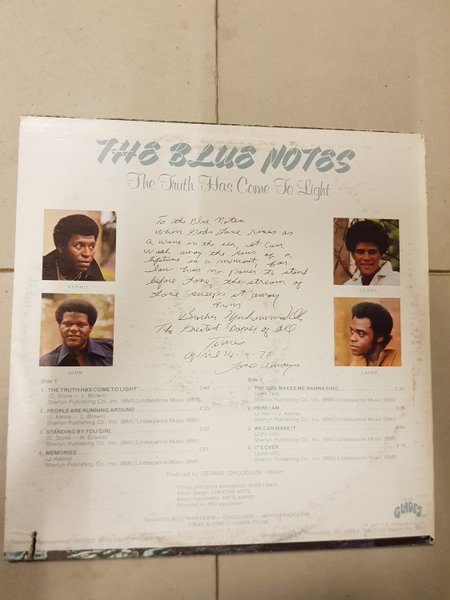 THE BLUE NOTES
The Truth Has Come To Light
To the Blue Notes
When Gods Love rises as
a wave in the sea, it can
wash away the sins of a
lifetime in a moment, for
law has no power to stand
before Love, the stream of
Love sweeps it away
From
The Greatest of all
Times
April 14-19-77
Love Always
BERNIE
LLOYD
JOHN
LARRY
Side 1
1. THE TRUTH HAS COME TO LIGHT 3:40
(C. Stone - L. Brown)
Sherlyn Publishing Co., Inc. (BMI)/Lindseyanne Music (BMI)
2. PEOPLE ARE RUNNING AROUND 4:33
(J. Atkins - L. Brown)
Sherlyn Publishing Co., Inc. (BMI)/Lindseyanne Music (BMI)
3. STANDING BY YOU GIRL 3:50
(C. Stone - M. Graves)
Sherlyn Publishing Co., Inc. (BMI)/Lindseyanne Music (BMI)
4. MEMORIES 5:01
(J. Atkins)
Sherlyn Publishing Co., Inc. (BMI)/Lindseyanne Music (BMI)
Side 2
1. THE GIRL MAKES ME WANNA SING
(John Hill)
Sherlyn Publishing Co., Inc. (BMI)/Lindseyanne Music (BMI)
2. HERE I AM
(J. Hill - J. Atkins)
Sherlyn Publishing Co., Inc. (BMI)/Lindseyanne Music (BMI)
3. WE CAN MAKE IT
(John Hill)
Sherlyn Publishing Co., Inc. (BMI)/Lindseyanne Music (BMI)
4. IT'S OVER
(John Hill)
Sherlyn Publishing Co., Inc. (BMI)/Lindseyanne Music (BMI)
Produced by: GEORGE "CHOCOLATE" PERRY
Strings and horns arranged by: MIKE LEWIS
Album design: CREATIVE ARTS
Album coordinator: KATIE KARNS
Recorded on MCI equipment
STEVE ALAIMO - HENRY STONE
GLADES